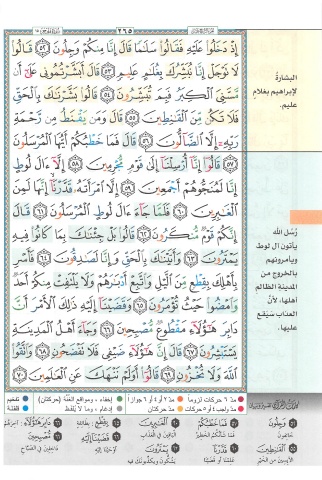 ٢٦٥
إِذْ دَخَلُوا۟ عَلَيْهِ فَقَالُوا۟ سَلَٰمًا قَالَ إِنَّا مِنكُمْ وَجِلُونَ ٥٢ قَالُوا۟
لَا تَوْجَلْ إِنَّا نُبَشِّرُكَ بِغُلَٰمٍ عَلِيمٍ ٥٣ قَالَ أَبَشَّرْتُمُونِى عَلَىٰٓ أَن
مَّسَّنِىَ ٱلْكِبَرُ فَبِمَ تُبَشِّرُونَ ٥٤ قَالُوا۟ بَشَّرْنَٰكَ بِٱلْحَقِّ
فَلَا تَكُن مِّنَ ٱلْقَٰنِطِينَ ٥٥ قَالَ وَمَن يَقْنَطُ مِن رَّحْمَةِ
رَبِّهِۦٓ إِلَّا ٱلضَّآلُّونَ ٥٦ قَالَ فَمَا خَطْبُكُمْ أَيُّهَا ٱلْمُرْسَلُونَ
٥٧ قَالُوٓا۟ إِنَّآ أُرْسِلْنَآ إِلَىٰ قَوْمٍ مُّجْرِمِينَ ٥٨ إِلَّآ ءَالَ لُوطٍ
إِنَّا لَمُنَجُّوهُمْ أَجْمَعِينَ ٥٩ إِلَّا ٱمْرَأَتَهُۥ قَدَّرْنَآ إِنَّهَا لَمِنَ
ٱلْغَٰبِرِينَ ٦٠ فَلَمَّا جَآءَ ءَالَ لُوطٍ ٱلْمُرْسَلُونَ ٦١ قَالَ
إِنَّكُمْ قَوْمٌ مُّنكَرُونَ ٦٢ قَالُوا۟ بَلْ جِئْنَٰكَ بِمَا كَانُوا۟ فِيهِ
يَمْتَرُونَ ٦٣ وَأَتَيْنَٰكَ بِٱلْحَقِّ وَإِنَّا لَصَٰدِقُونَ ٦٤ فَأَسْرِ
بِأَهْلِكَ بِقِطْعٍ مِّنَ ٱلَّيْلِ وَٱتَّبِعْ أَدْبَٰرَهُمْ وَلَا يَلْتَفِتْ مِنكُمْ أَحَدٌ
وَٱمْضُوا۟ حَيْثُ تُؤْمَرُونَ ٦٥ وَقَضَيْنَآ إِلَيْهِ ذَٰلِكَ ٱلْأَمْرَ أَنَّ
دَابِرَ هَٰٓؤُلَآءِ مَقْطُوعٌ مُّصْبِحِينَ ٦٦ وَجَآءَ أَهْلُ ٱلْمَدِينَةِ
يَسْتَبْشِرُونَ ٦٧ قَالَ إِنَّ هَٰٓؤُلَآءِ ضَيْفِى فَلَا تَفْضَحُونِ ٦٨ وَٱتَّقُوا۟
ٱللَّهَ وَلَا تُخْزُونِ ٦٩ قَالُوٓا۟ أَوَلَمْ نَنْهَكَ عَنِ ٱلْعَٰلَمِينَ ٧٠
البشارةُ
لإبراهيم بغلام
عليم.
رُسل الله
يأتون آل لوط
ويأمرونهم
بالخروج من
المدينة الظالم
أهلها، لأنّ
العذاب سيَقع
عليها.
مدّ ٦ حركات لزوماً مدّ ٢ أو ٤ أو ٦ جوازاً إخفاء، ومواقع الغُنّة (حركتان) تفخيم
مدّ واجب ٤ أو ٥ حركات مدّ حركتان إدغام، وما لا يُلفَظ قلقلة